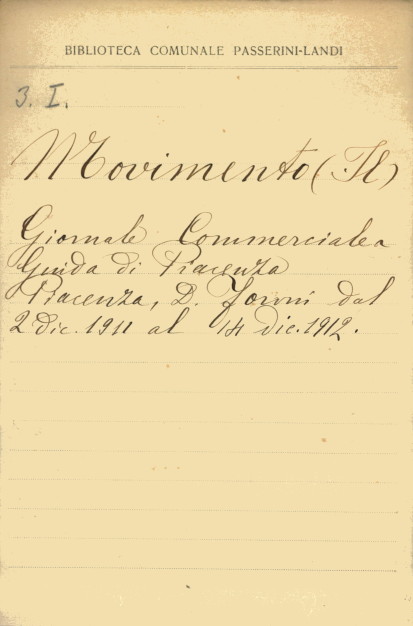 BIBLIOTECA COMUNALE PASSERINI-LANDI
3. I.
Movimento (Il)
Giornale Commerciale e
Guida di Piacenza
Piacenza, D. Foroni dal
2 dic. 1911 al 14 dic. 1912.